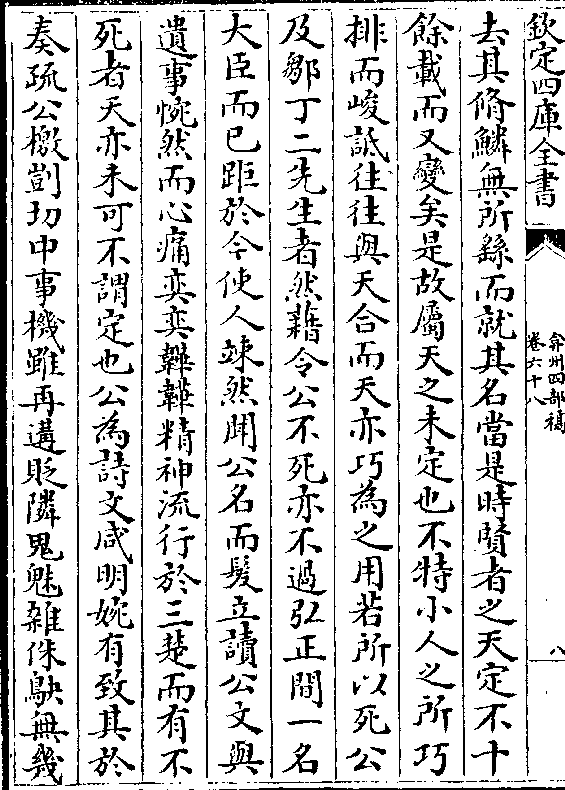 欽定四庫全書
弇州四部稿
卷六十八
八
去其脩鱗無所繇而就其名當是時賢者之天定不十
餘載而又變矣是故屬天之未定也不特小人之所巧
排而峻詆往往與天合而天亦巧為之用若所以死公
及鄒丁二先生者然藉令公不死亦不過弘正間一名
大臣而已距於今使人竦然聞公名而髮立讀公文與
遺事惋然而心痛奕奕韡韡精神流行於三楚而有不
死者天亦未可不謂定也公為詩文咸明婉有致其於
奏疏公檄剴切中事機雖再遘貶隣鬼魅雜侏鴃無幾